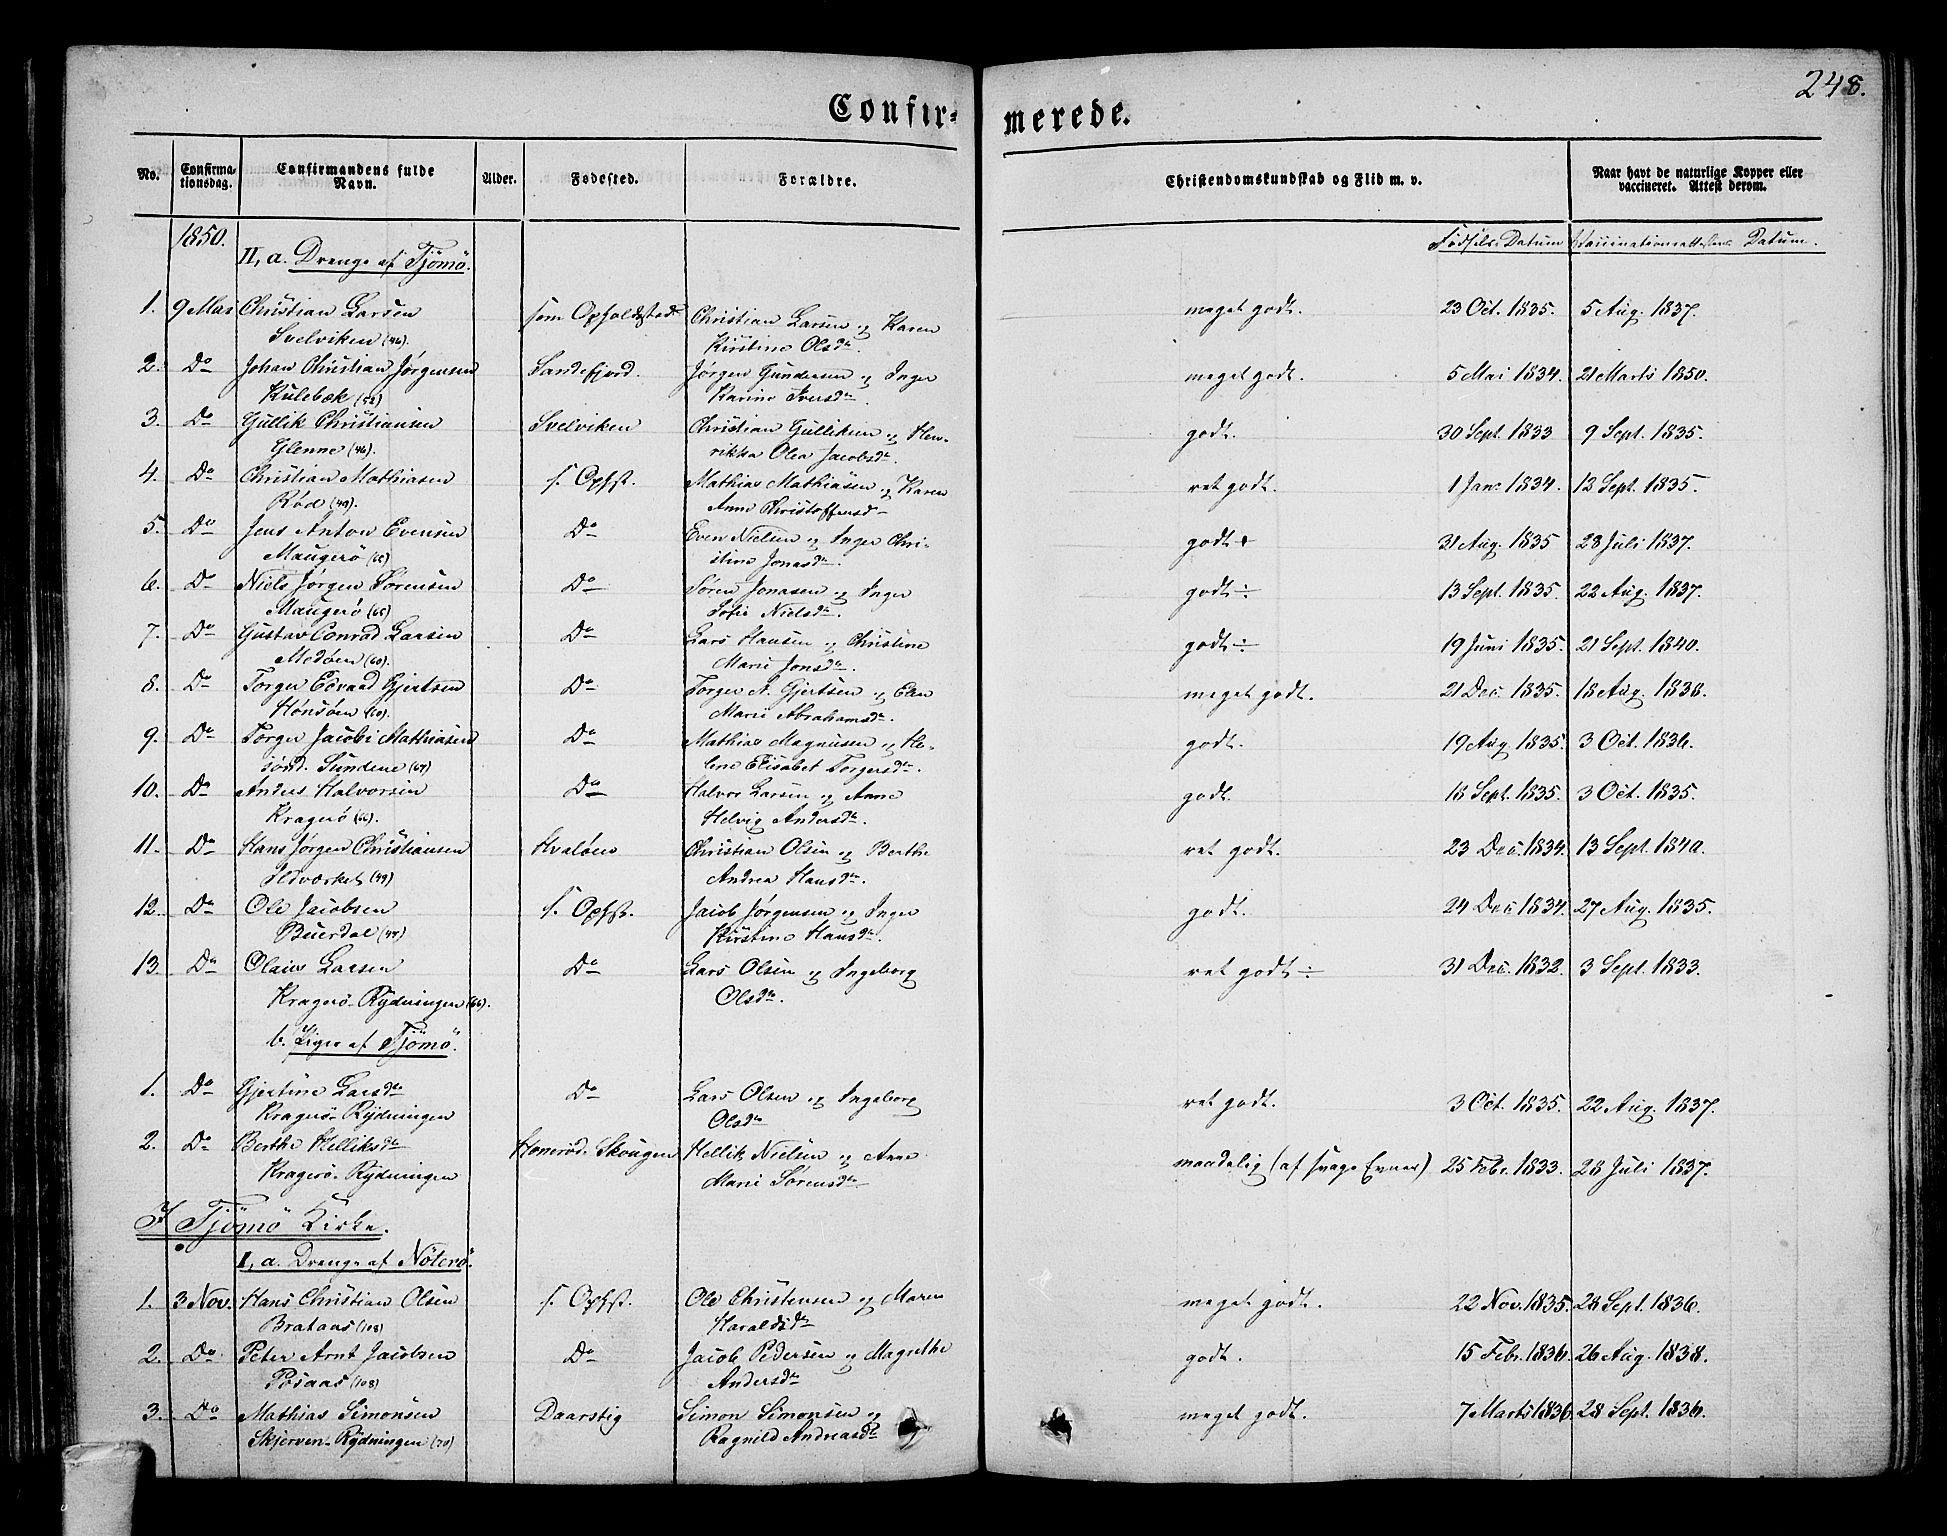 248.
Confir- merede.
No. Confirma- Confirmandens fulde Alder. Fødested. Forældre. Christendomskundskab og Flid m. v. Naar havt de naturlige Kopper eller
tionsdag. Navn. vaccineret. Attest derom.
1850. Fødsels Datum Vaccinationsattestens Datum.
II, a. Drenge af Tjömö.
1. 9 Mai Christian Larsen som Opholdssted Christian Larsen og Karen meget godt. 23 Oct. 1835. 5 Aug. 1837.
Svelviken (46). Kirstine Olsdr.
2. Do Johan Christian Jørgensen Sandefjord. Jørgen Gundersen og Inger meget godt. 5 Mai 1834. 21 Marts 1850.
Kulebæk (52) Karine Iversdr.
3. Do Gullik Christiansen Svelviken Christian Gulliksen og Hen- godt. 30 Sept. 1833 9 Sept. 1835.
Glenne (46). rikka Olea Jacobsdr.
4. Do Christian Mathiasen s. Ophst. Mathias Mathiasen og Karen ret godt. 1 Jan. 1834. 12 Sept. 1835.
Rød (49). Anne Christoffersdr
5. Do Jens Anton Evensen Do Even Nielsen og Inger Chri- godt + 31 Aug. 1835 28 Juli 1837.
Maugerö (65) stine Jonasdr.
6. Do Niels Jørgen Sørensen Do Søren Jonasen og Inger godt ÷ 13 Sept. 1835. 22 Aug. 1837.
Maugerö (65) Sofie Nielsdr.
7. Do Gustav Conrad Larsen Do Lars Hansen og Christine godt ÷ 19 Juni 1835. 21 Sept. 1840.
Medøen (60). Marie Jonsdr.
8. Do Torger Edvard Gjertsen Do Torger N. Gjertsen og Elen meget godt. 21 Dec. 1835. 18 Aug. 1838.
Hønsøen (60). Marie Abrahamsdr.
9. Do Torger Jacobi Mathiasen Do Mathias Magnusen og He- godt. 19 Aug. 1835. 3 Oct. 1836.
sønd. Sundene (67) lene Elisabet Torgersdr.
10. Do Anders Halvorsen Do Halvor Larsen og Anne godt. 18 Sept. 1835. 3 Oct. 1835.
Kragerö (66). Helvig Andersdr.
11. Do Hans Jørgen Christiansen Hvaløen Christian Olsen og Berthe ret godt. 23 Dec. 1834. 13 Sept. 1840.
Ildværket (49) Andrea Hansdr.
12. Do Ole Jacobsen s. Ophst. Jacob Jørgensen og Inger godt. 24 Dec 1834. 27 Aug. 1835.
Buerdal (44) Kirstine Hansdr.
13. Do Olaus Larsen Do Lars Olsen og Ingeborg ret godt ÷ 31 Dec. 1832. 3 Sept. 1833.
Kragerö-Rydningen (66). Olsdr.
b. Piger af Tjömö.
1. Do Gjertine Larsdr Do Lars Olsen og Ingeborg ret godt. 3 Oct. 1835. 22 Aug. 1837.
Kragerö-Rydningen Olsdr
2. Do Berthe Helliksdr Honerød-Skougen Hellik Nielsen og Anne maadelig (af svage Evner) 25 Febr. 1833. 28 Juli 1837.
Kragerö-Rydningen Marie Sørensdr
I Tjömö Kirke.
I, a. Drenge af Nöterö.
1. 3 Nov. Hans Christian Olsen s. Ophst. Ole Christensen og Maren meget godt. 22 Nov. 1835. 28 Sept. 1836.
Brataas (108) Haraldsdr
2. Do Peter Arnt Jacobsen Do Jacob Pedersen og Magrethe godt. 15 Febr. 1836. 26 Aug. 1838.
Røsaas (108) Andersdr
3. Do Mathias Simonsen Daarstig Simon Simonsen og meget godt. 7 Marts 1836. 28 Sept. 1836.
Skjerven-Rydningen (70) Ragnild Andreasdr